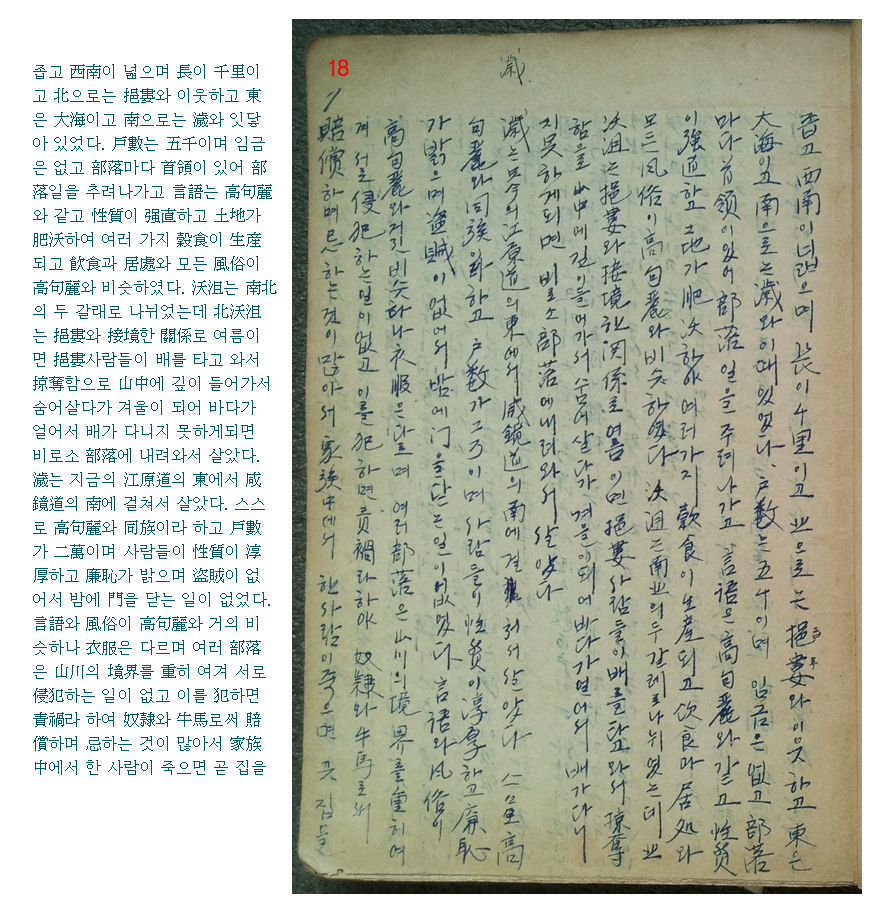 좁고 西南이 넓으며 長이 千里이
고 北으로는 挹婁와 이웃하고 東
은 大海이고 南으로는 濊와 잇닿
아 있었다. 戶數는 五千이며 임금
은 없고 部落마다 首領이 있어 部
落일을 추려나가고 言語는 高句麗
와 같고 性質이 强直하고 土地가
肥沃하여 여러 가지 穀食이 生産
되고 飮食과 居處와 모든 風俗이
高句麗와 비슷하였다. 沃沮는 南北
의 두 갈래로 나뉘었는데 北沃沮
는 挹婁와 接境한 關係로 여름이
면 挹婁사람들이 배를 타고 와서
掠奪함으로 山中에 깊이 들어가서
숨어살다가 겨울이 되어 바다가
얼어서 배가 다니지 못하게되면
비로소 部落에 내려와서 살았다.
濊는 지금의 江原道의 東에서 咸
鏡道의 南에 걸쳐서 살았다. 스스
로 高句麗와 同族이라 하고 戶數
가 二萬이며 사람들이 性質이 淳
厚하고 廉恥가 밝으며 盜賊이 없
어서 밤에 門을 닫는 일이 없었다.
言語와 風俗이 高句麗와 거의 비
슷하나 衣服은 다르며 여러 部落
은 山川의 境界를 重히 여겨 서로
侵犯하는 일이 없고 이를 犯하면
責禍라 하여 奴隸와 牛馬로써 賠
償하며 忌하는 것이 많아서 家族
中에서 한 사람이 죽으면 곧 집을
18
좁고 西南이 넓으며 長이 千里이고 北으로는 挹婁와 이웃하고 東은
大海이고 南으로는 濊와 이때있었다. 戶數는 五千이며 임금은 없고 部落
마다 首領이 있어 部落일을 추려나가고 言語은 高句麗와 같고 性質
이 強直하고 土地가 肥沃하야 여러가지 穀食이 生産되고 飮食과 居処와
모든 風俗이 高句麗와 비슷하였다 沃沮는 南北의 두갈래로 나뉘었는데 北
沃沮는 挹婁와 接境한 関係로 여름이면 挹婁사람들이 배를타고와서 掠奪
함을 山中에 깊이들어가서 숨어살다가 겨울이되어 바다가얼어서 배가다니
지못하게되면 비로소 部落에내려와서 살았다
濊
濊는 只今의 江原道의 東에서 咸鏡道의 南에 걸쳐서 살았다 스스로 高
句麗와 同族이라하고 戶数가 二万이며 사람들이 性質이 淳厚하고 廉恥
가 밝으며 盜賊이 없어서 밤에 门을닫는일이없었다. 言語와 風俗이
高句麗와 거진 비슷하나 衣服은 다르며 여러部落은 山川의 境界를 重히여
겨 서로 侵犯하는일이없고 이를 犯하면 責禍라하야 奴隸와 牛馬로써
賠償하며 忌하는것이 많아서 家族中에서 한사람이죽으면 곧 집을